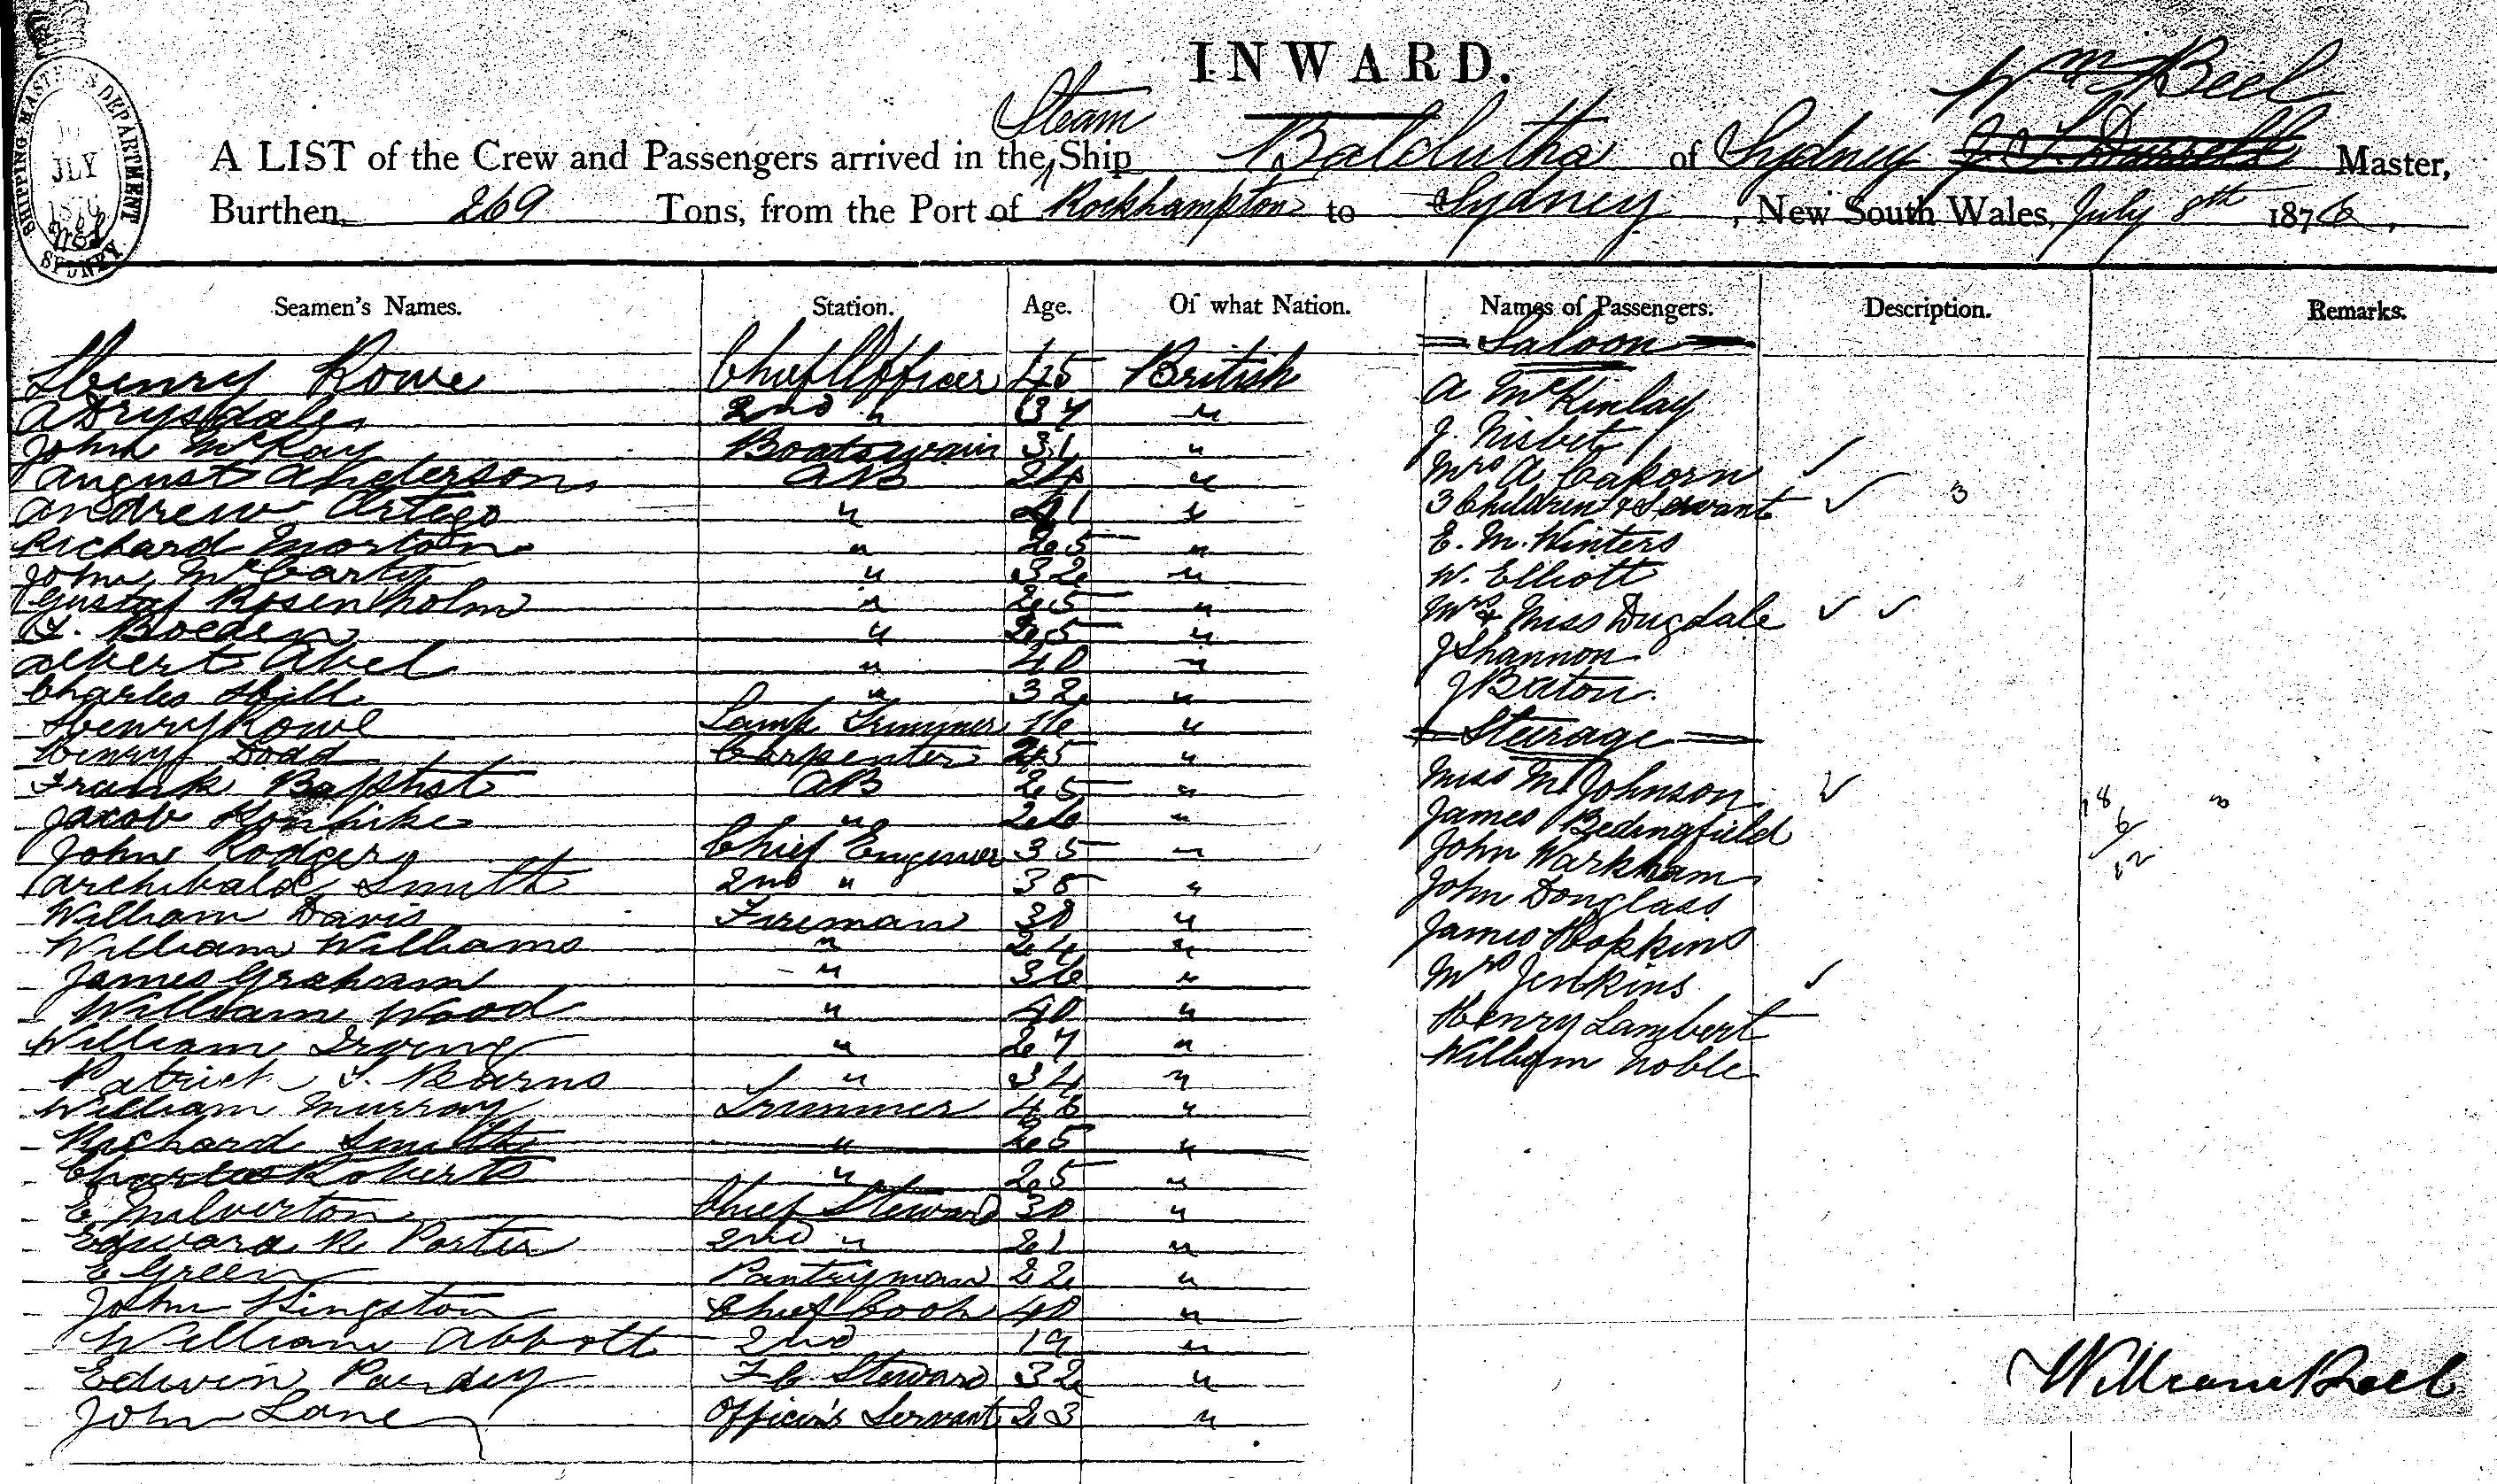 INWARD.
Wm Beel
Steam
A LIST of the Crew and Passengers arrived in the Ship Balclutha of Sydney Master,
Burthen, 269 Tons, from the Port of Rockhampton to Sydney, New South Wales, July 8th 1876.
SHIPPING MASTER'S DEPARTMENT
JLY
SYDNEY
Seamen's Names. Station. Age. Of what Nation. Names of Passengers. Description. Remarks.
Saloon
Henry Rowe Chief Officer 45 British
A McKinlay
A Drysdale 2nd " 37 "
J. Nisbet
John McKay Boatswain 31 "
Mrs A Caporn
August Anderson AB 24 "
3 Children & Servant 3
Andrew Artego " 41 "
E. M. Winters
Richard Morton " 25 "
W. Elliott
John McCarty " 32 "
Mrs & Miss Dugdale
Gustaf Rosenholm " 25 "
J Shannon
Boeden " 25 "
J Baton.
Albert Abel " 40 "
Charles Hill " 32 "
Steurage
Henry Rowe Lamp Trimmer 16 "
Miss M Johnson
Henry Dodd Carpenter 45 "
James Bedingfield
Frank Baptist AB 25 "
John Warkham
Jacob " 26 "
John Douglass
John Rodgers Chief Engineer 35 "
James Hopkins
Archibald Smith 2nd " 38 "
Mrs Jenkins
William Davis Fireman 30 "
Henry Lambert
William Williams " 24 "
William Noble
James Graham " 36 "
William Wood " 40 "
William Irving " 27 "
Patrick Burns " 34 "
William Murray Trimmer 46 "
Richard Smith " 25 "
Charles Roberts " 25 "
E Milverton Chief Steward 30 "
Edward R Porter 2nd " 21 "
E Green Pantryman 22 "
John Kingston Chief Cook 40 "
William Abbott 2nd 19 "
Edwin Purdey F.C. Steward 32 "
John Lane Officer's Servant 23 "
William Beel